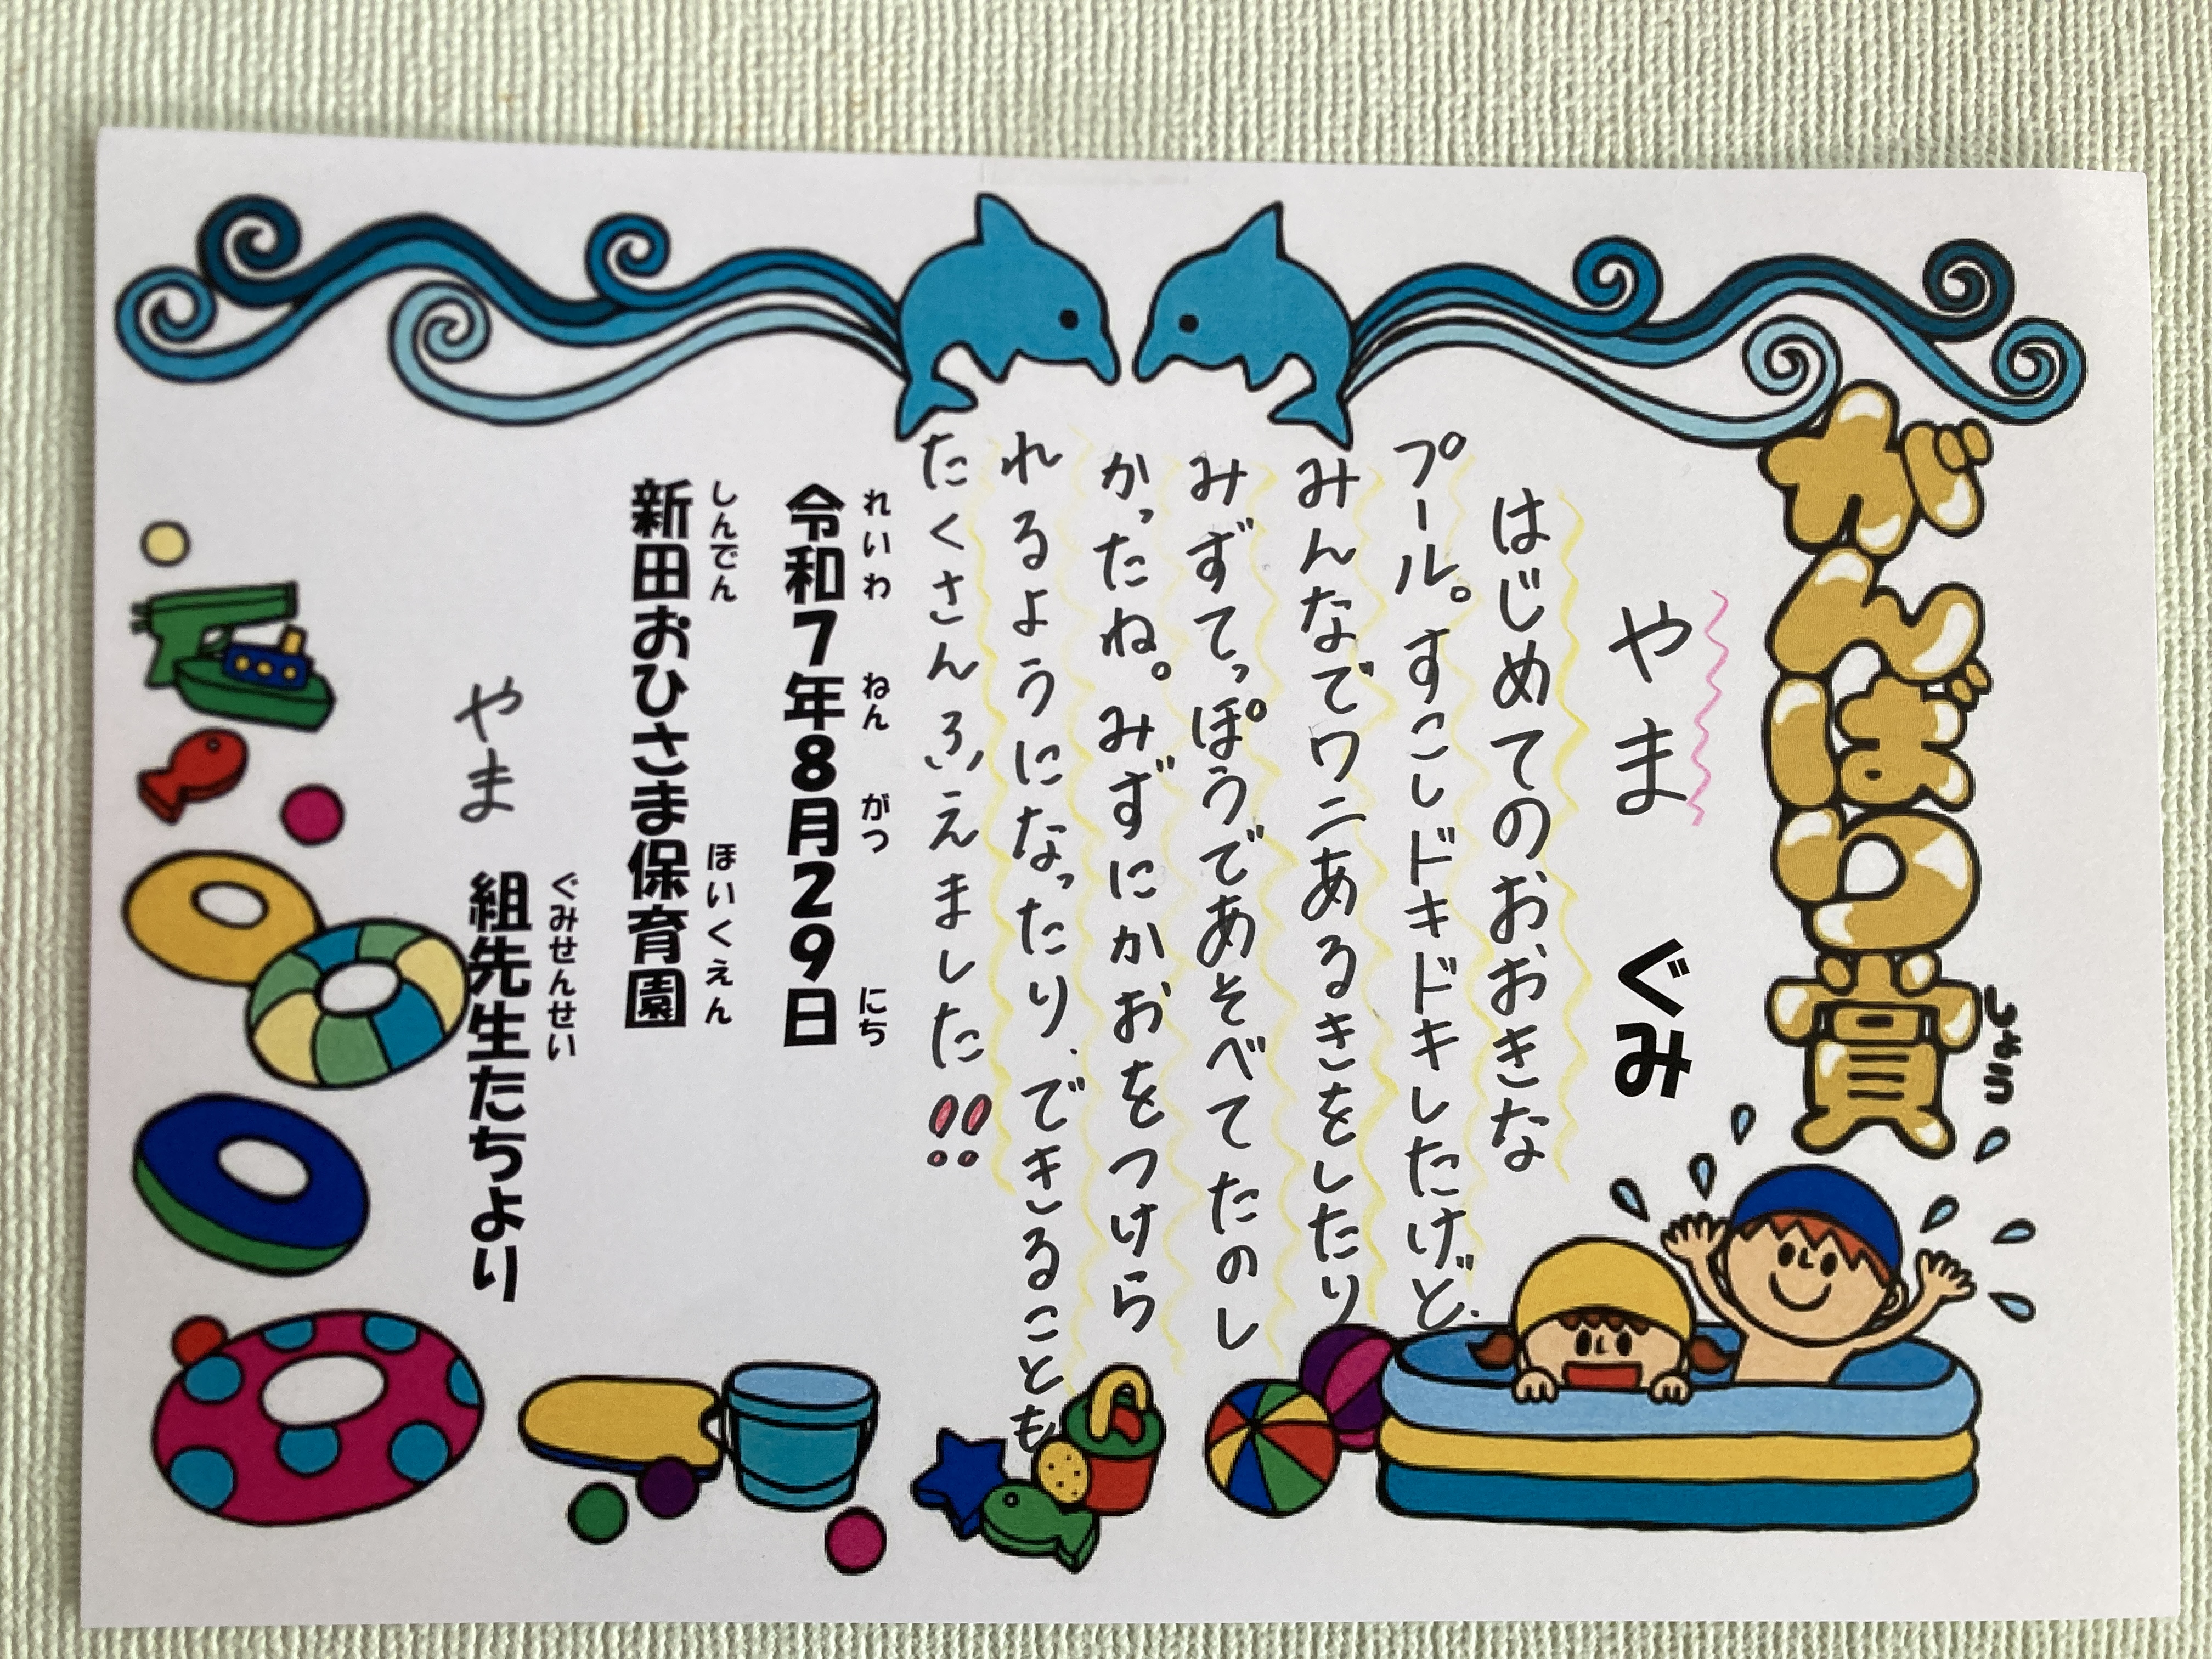 がんばり賞
しょう
やま ぐみ
はじめてのおおきな
プール。すこしドキドキしたけど、
みんなでワニあるきをしたり
みずてっぽうであそべてたのし
かったね。みずにかおをつけら
れるようになったり、できることも
たくさんふえました!!
れいわ ねん がつ にち
令和7年8月29日
しんでん ほいくえん
新田おひさま保育園
ぐみせんせい
やま 組先生たちより